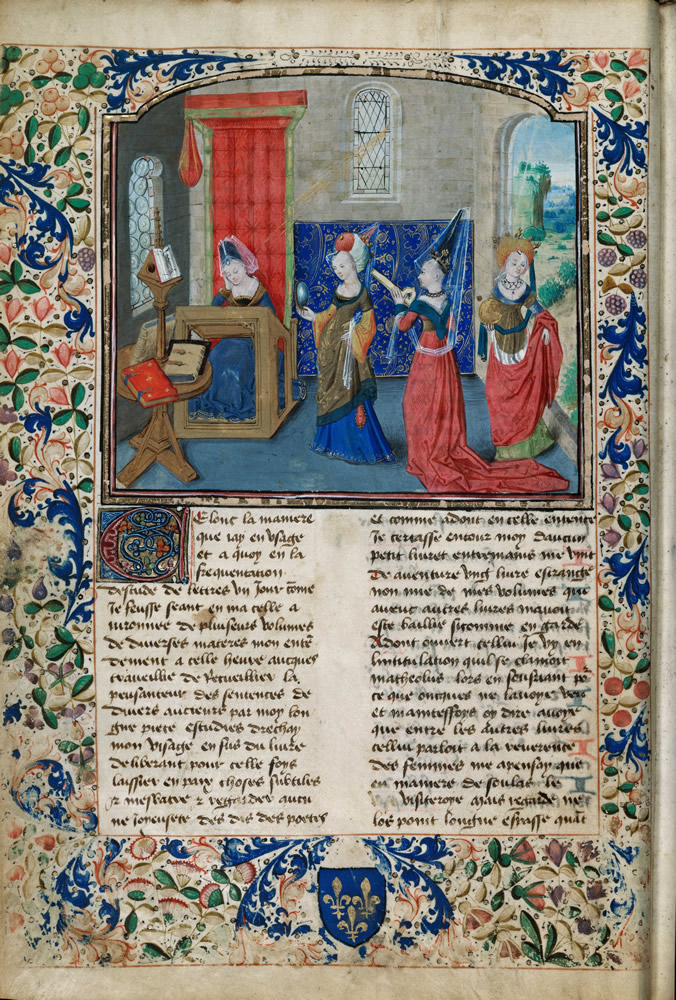 Selonc la maniere
que iay en vsage
et a quoy en la
frequentation
destude de lettres vn Jour come
Je feusse seant en ma celle a
uironnee de plusieurs volumes
de diuerses matieres mon entẽ
dement a celle heure aucques
traueillie de Recueillier la
pensanteur des sentences de
diuers aucteurs par moy lon
gue piece estudies drechay
mon visage en sus du liure
deliberant pour celle foys
laissier en paix choses subtiles
& mesbatre & regarder aucu
ne Joyeusete des dis des poetes
Et comme adont en celle entente
Je cercasse entour moy daucun
petit liuret entremains me vint
De auenture vng liure estrange
non mie de mes volumes que
auecq autres liures mauoit
este baillie sicomme en garde
Adont ouuert cellui Je vy en
lintitulation quil se clamoit
matheolus lors en soubriant po
ce que oncques ne lauoye veu
et maintesfoys oy dire auoye
que entre les autres liures
cellui parloit a la reuerence
des femmes me apensay que
en maniere de soulas le
visiteroye mais regarde ne
loz point longue espasse quãt